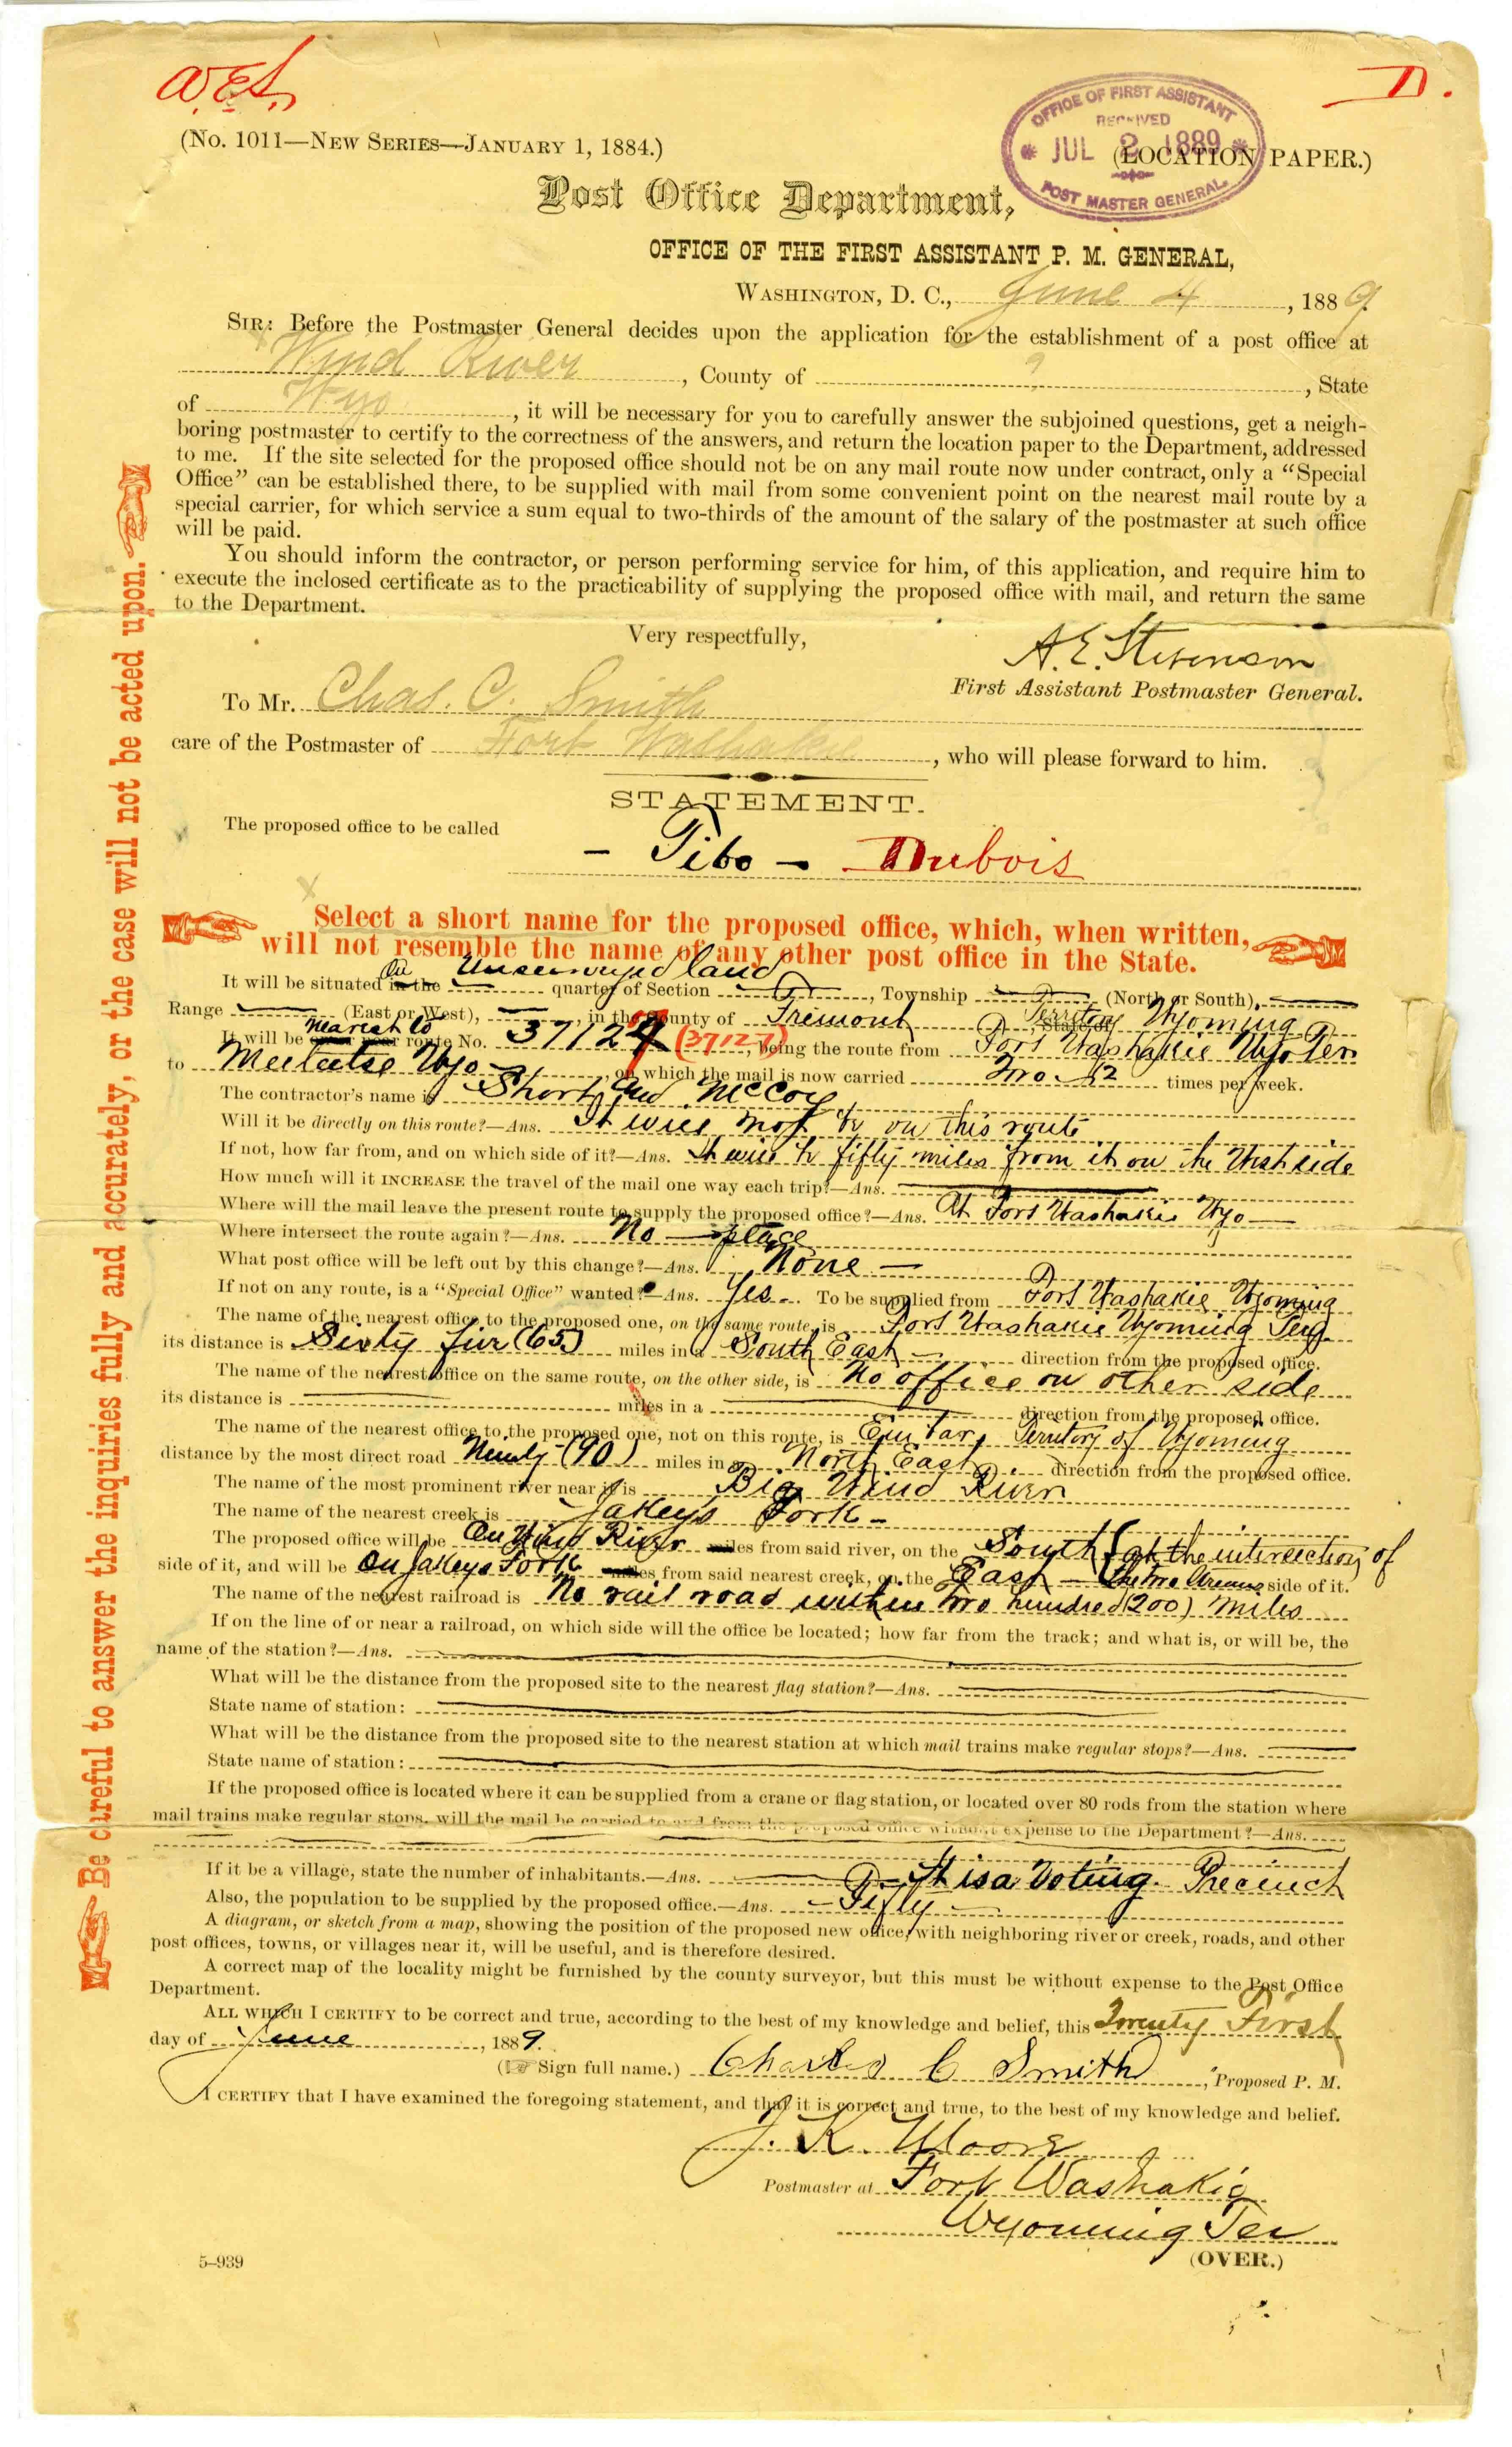 A.E.S.
D.
(No. 1011—New Series—January 1, 1884.)
OFFICE OF FIRST ASSISTANT
RECEIVED
JUL 2 1889
POST MASTER GENERAL
(LOCATION PAPER.)
Post Office Department,
OFFICE OF THE FIRST ASSISTANT P. M. GENERAL,
Washington, D. C., June 4, 1889.
Sir: Before the Postmaster General decides upon the application for the establishment of a post office at
Wind River, County of ?, State
of Wyo, it will be necessary for you to carefully answer the subjoined questions, get a neigh-
boring postmaster to certify to the correctness of the answers, and return the location paper to the Department, addressed
to me. If the site selected for the proposed office should not be on any mail route now under contract, only a “Special
Office” can be established there, to be supplied with mail from some convenient point on the nearest mail route by a
special carrier, for which service a sum equal to two-thirds of the amount of the salary of the postmaster at such office
will be paid.
You should inform the contractor, or person performing service for him, of this application, and require him to
execute the inclosed certificate as to the practicability of supplying the proposed office with mail, and return the same
to the Department.
Very respectfully,
A. E. Stevenson
First Assistant Postmaster General.
To Mr. Chas. C. Smith
care of the Postmaster of Fort Washakie, who will please forward to him.
STATEMENT.
The proposed office to be called
– Tibo – Dubois
Select a short name for the proposed office, which, when written,
will not resemble the name of any other post office in the State.
It will be situated in the On Unsurveyed land quarter of Section, Township (North or South),
Range (East or West), in the County of Fremont, State of Territory Wyoming
It will be on or near nearest to route No. 37124 (37127), being the route from Fort Washakie Wyo Terr
to Meeteetse Wyo, on which the mail is now carried Two – 2 times per week.
The contractor's name is Short and McCoy
Will it be directly on this route?—Ans. It will not be on this route
If not, how far from, and on which side of it?—Ans. It will be fifty miles from it on the West side
How much will it INCREASE the travel of the mail one way each trip?—Ans.
Where will the mail leave the present route to supply the proposed office?—Ans. At Fort Washakie Wyo—
Where intersect the route again?—Ans. No — place
What post office will be left out by this change?—Ans. None —
If not on any route, is a “Special Office” wanted?—Ans. Yes. To be supplied from Fort Washakie Wyoming
The name of the nearest office to the proposed one, on the same route, is Fort Washakie Wyoming Terry
its distance is Sixty five (65) miles in a South East direction from the proposed office.
The name of the nearest office on the same route, on the other side, is No office on other side
its distance is miles in a direction from the proposed office.
The name of the nearest office to the proposed one, not on this route, is Embar, Territory of Wyoming
distance by the most direct road Ninety (90) miles in a North East direction from the proposed office.
The name of the most prominent river near it is Big Wind River
The name of the nearest creek is Jakeys Fork –
The proposed office will be On Wind River miles from said river, on the South (at the intersection of
side of it, and will be On Jakeys Fork miles from said nearest creek, on the East – the two streams side of it.
The name of the nearest railroad is No rail road within two hundred (200) miles
If on the line of or near a railroad, on which side will the office be located; how far from the track; and what is, or will be, the
name of the station?—Ans.
What will be the distance from the proposed site to the nearest flag station?—Ans.
State name of station:
What will be the distance from the proposed site to the nearest station at which mail trains make regular stops?—Ans.
State name of station:
If the proposed office is located where it can be supplied from a crane or flag station, or located over 80 rods from the station where
mail trains make regular stops, will the mail be carried to and from the proposed office without expense to the Department?—Ans.
If it be a village, state the number of inhabitants.—Ans. It is a Voting Precinct
Also, the population to be supplied by the proposed office.—Ans. – Fifty –
A diagram, or sketch from a map, showing the position of the proposed new office, with neighboring river or creek, roads, and other
post offices, towns, or villages near it, will be useful, and is therefore desired.
A correct map of the locality might be furnished by the county surveyor, but this must be without expense to the Post Office
Department.
All which I certify to be correct and true, according to the best of my knowledge and belief, this Twenty First
day of June, 1889.
(☞ Sign full name.) Charles C Smith, Proposed P. M.
I certify that I have examined the foregoing statement, and that it is correct and true, to the best of my knowledge and belief.
J. K. Moore
Postmaster at Fort Washakie
Wyoming Ter
5–939
(OVER.)
Be careful to answer the inquiries fully and accurately, or the case will not be acted upon.